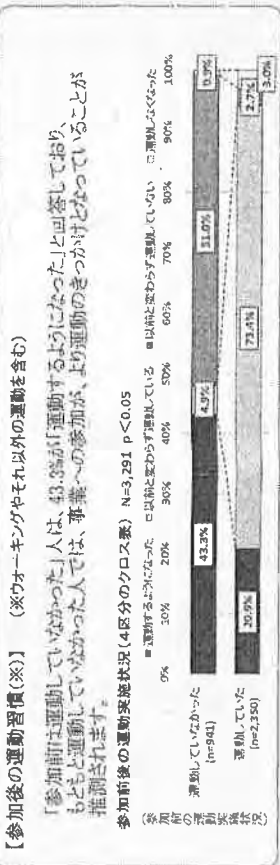 【参加後の運動習慣(※)】 (※ウォーキングやそれ以外の運動を含む)
「参加前は運動していなかった」人は、43.3%が「運動するようになった」と回答しており、
もともと運動していなかった人では、事業への参加が、より運動のきっかけとなっていることが
推測されます。
参加前後の運動実施状況(4区分のクロス表) N=3,291 p<0.05
■運動するようになった □以前と変わらず運動している ■以前と変わらず運動していない □運動しなくなった
0% 10% 20% 30% 40% 50% 60% 70% 80% 90% 100%
(参加前の運動実施状況)
運動していなかった
(n=941)
43.3% 4.9% 51.0% 0.9%
運動していた
(n=2,350)
20.9% 73.4% 2.7% 3.0%